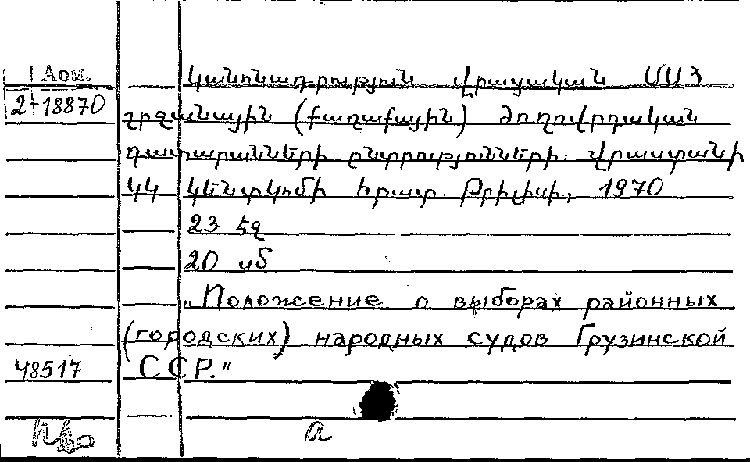 1 Aом.
Կանոնադրություն Վրացական ՍՍՌ
2+18870
շրջանային (քաղաքային) ժողովրդական
դատարանների ընտրությունների. Վրաստանի
ԿԿ Կենտկոմի հրատ Թբիլիսի, 1970
23 էջ
20 սմ
„Положение о выборах районных
(городских) народных судов Грузинской
48517 ССР."
а